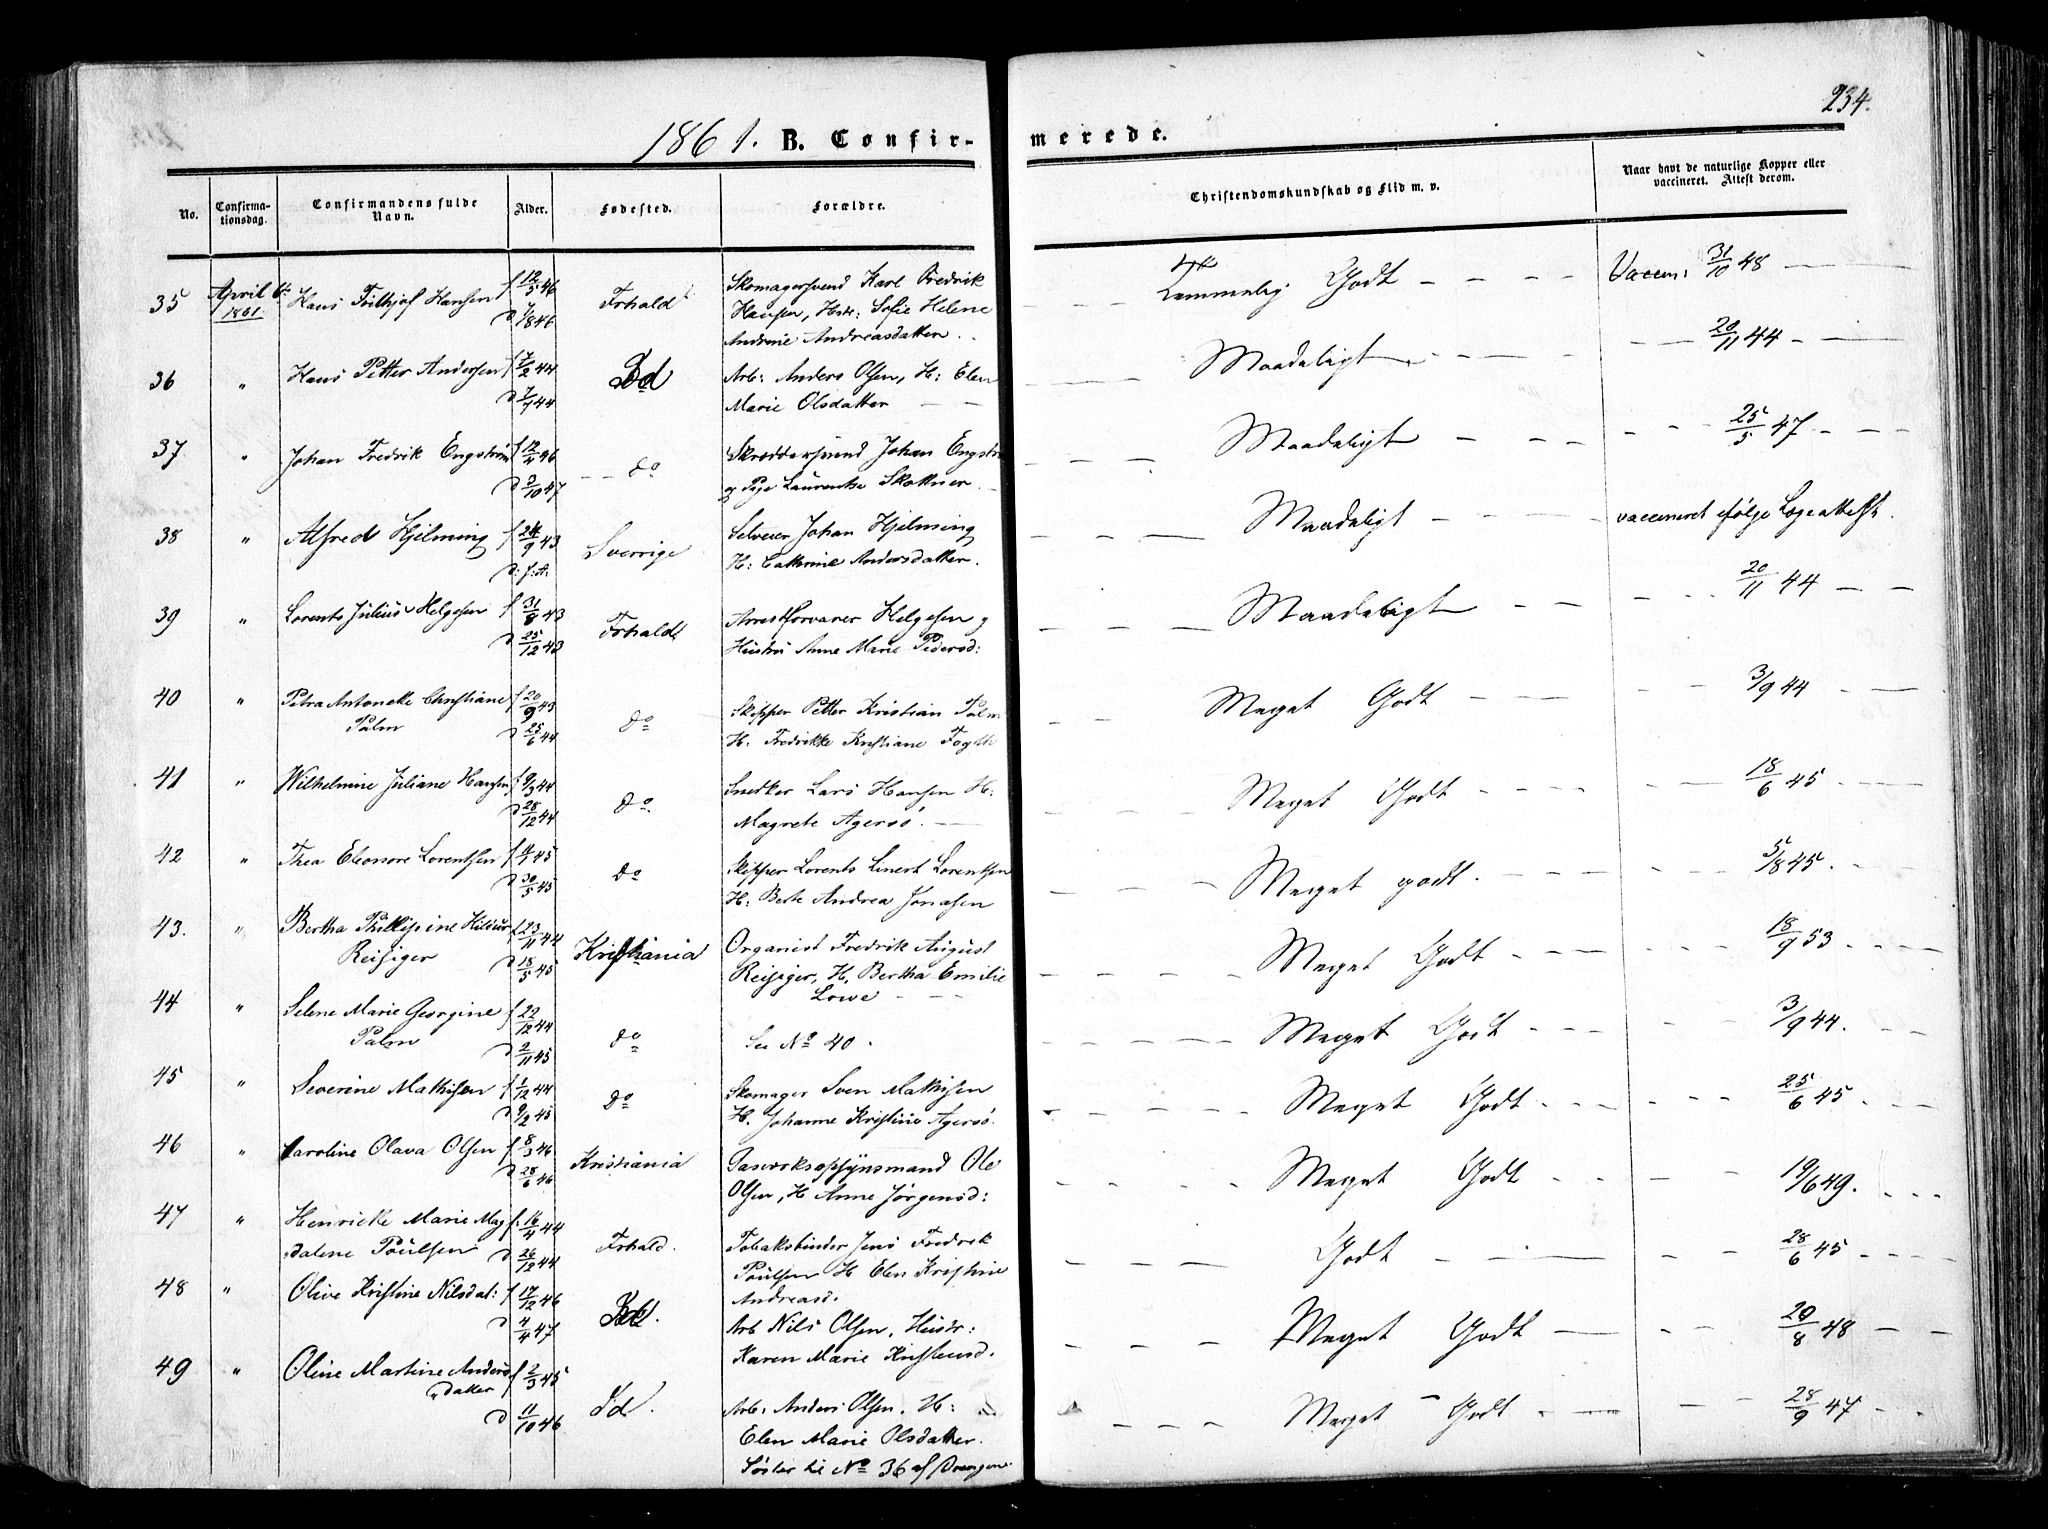 234.
1861. B. Confir-
merede.
No.
Confirma-
tionsdag.
Confirmandens fulde
Navn.
Alder.
Fødested.
Forældre.
Christendomskundskab og Flid m. v.
Naar havt de naturlige Kopper eller
vaccineret. Attest derom.
35 April 1861. Hans Frithjof Hansen f 12/5 46 Frhald Skomagersvend Karl Fredrik Temmelig Godt Vaccin: 31/10 48
Hansen, Hstr: Sofie Helene
Andrine Andreasdatter.
36 " Hans Petter Andersen f 7/2 44 Id Arb: Anders Olsen, H: Elen Maadeligt 20/11 44
Marie Olsdatter
37 " Johan Fredrik Engström f 12/4 46 do Skreddersvend Johan Engströ Maadeligt 25/5 47
d 3/10 47 og Pige Laurentse Skattner
38 " Alfred Hjelming f 24/9 43 Sverrige Selveier Johan Hjelming Maadeligt vaccineret ifølge Lægeattest.
H: Cathrine Andersdatter.
39 " Lorents Julius Helgesen f 31/8 43 Frhald Arrestforvarer Helgesen og Maadeligt 20/11 44
d 25/12 43 Hustru Anne Marie Pedersd:
40 " Petra Antonette Christiane f 20/9 43 do Skipper Petter Kristian Palm Meget Godt 3/9 44
Palm d 25/6 44 H: Fredrikke Kristiane Fogth
41 " Wilhelmine Juliane Hansen f 9/3 44 do. Snedker Lars Hansen H: Meget Godt 18/6 45
d 28/12 44 Magrete Agersö.
42 " Thea Eleonore Lorentsen f 4/1 45 do Skipper Lorents Linert Lorentsen Meget godt. 5/8 45.
d 30/5 45 H: Berte Andrea Jonasen
43. " Bertha Phillipine Hildur f 23/11 44 Kristiania Organist Fredrik August Meget Godt 18/9 53
Reisiger d 18/5 45 Reisiger, H. Bertha Emilie
Lowe
44 " Selene Marie Georgine f 22/12 44 do See No 40. Meget Godt 3/9 44.
Palm d 2/11 45
45 " Severine Mathisen f 1/12 44 do Skomager Sven Mathisen Meget Godt 25/6 45
d 9/2 45 H. Johanne Kristine Agersö.
46 " Caroline Olava Olsen f 8/3 46 Kristiania Gasværksopsynsmand Ole Meget Godt 19/6 49.
d 28/6 46 Olsen, H Anne Jørgensd:
47 " Henriette Marie Mag f. 16/4 44 Frhald. Tobaksbinder Jens Fredrek Godt 28/6 45
dalene Poulsen d 26/12 44 Poulsen H Elen Kristine
Andreasd.
48 " Olive Kristine Nilsdat: f 17/12 46 Id. Arb Nils Olsen, Hustr: Meget Godt 20/8 48
d 4/4 47 Karen Marie Kristensd.
49 " Oline Martine Anders f 2/3 45 Id. Arb: Anders Olsen, H: Meget Godt 28/9 47
datter d 11/10 46 Elen Marie Olsdatter.
Söster til No 36 af Drengene